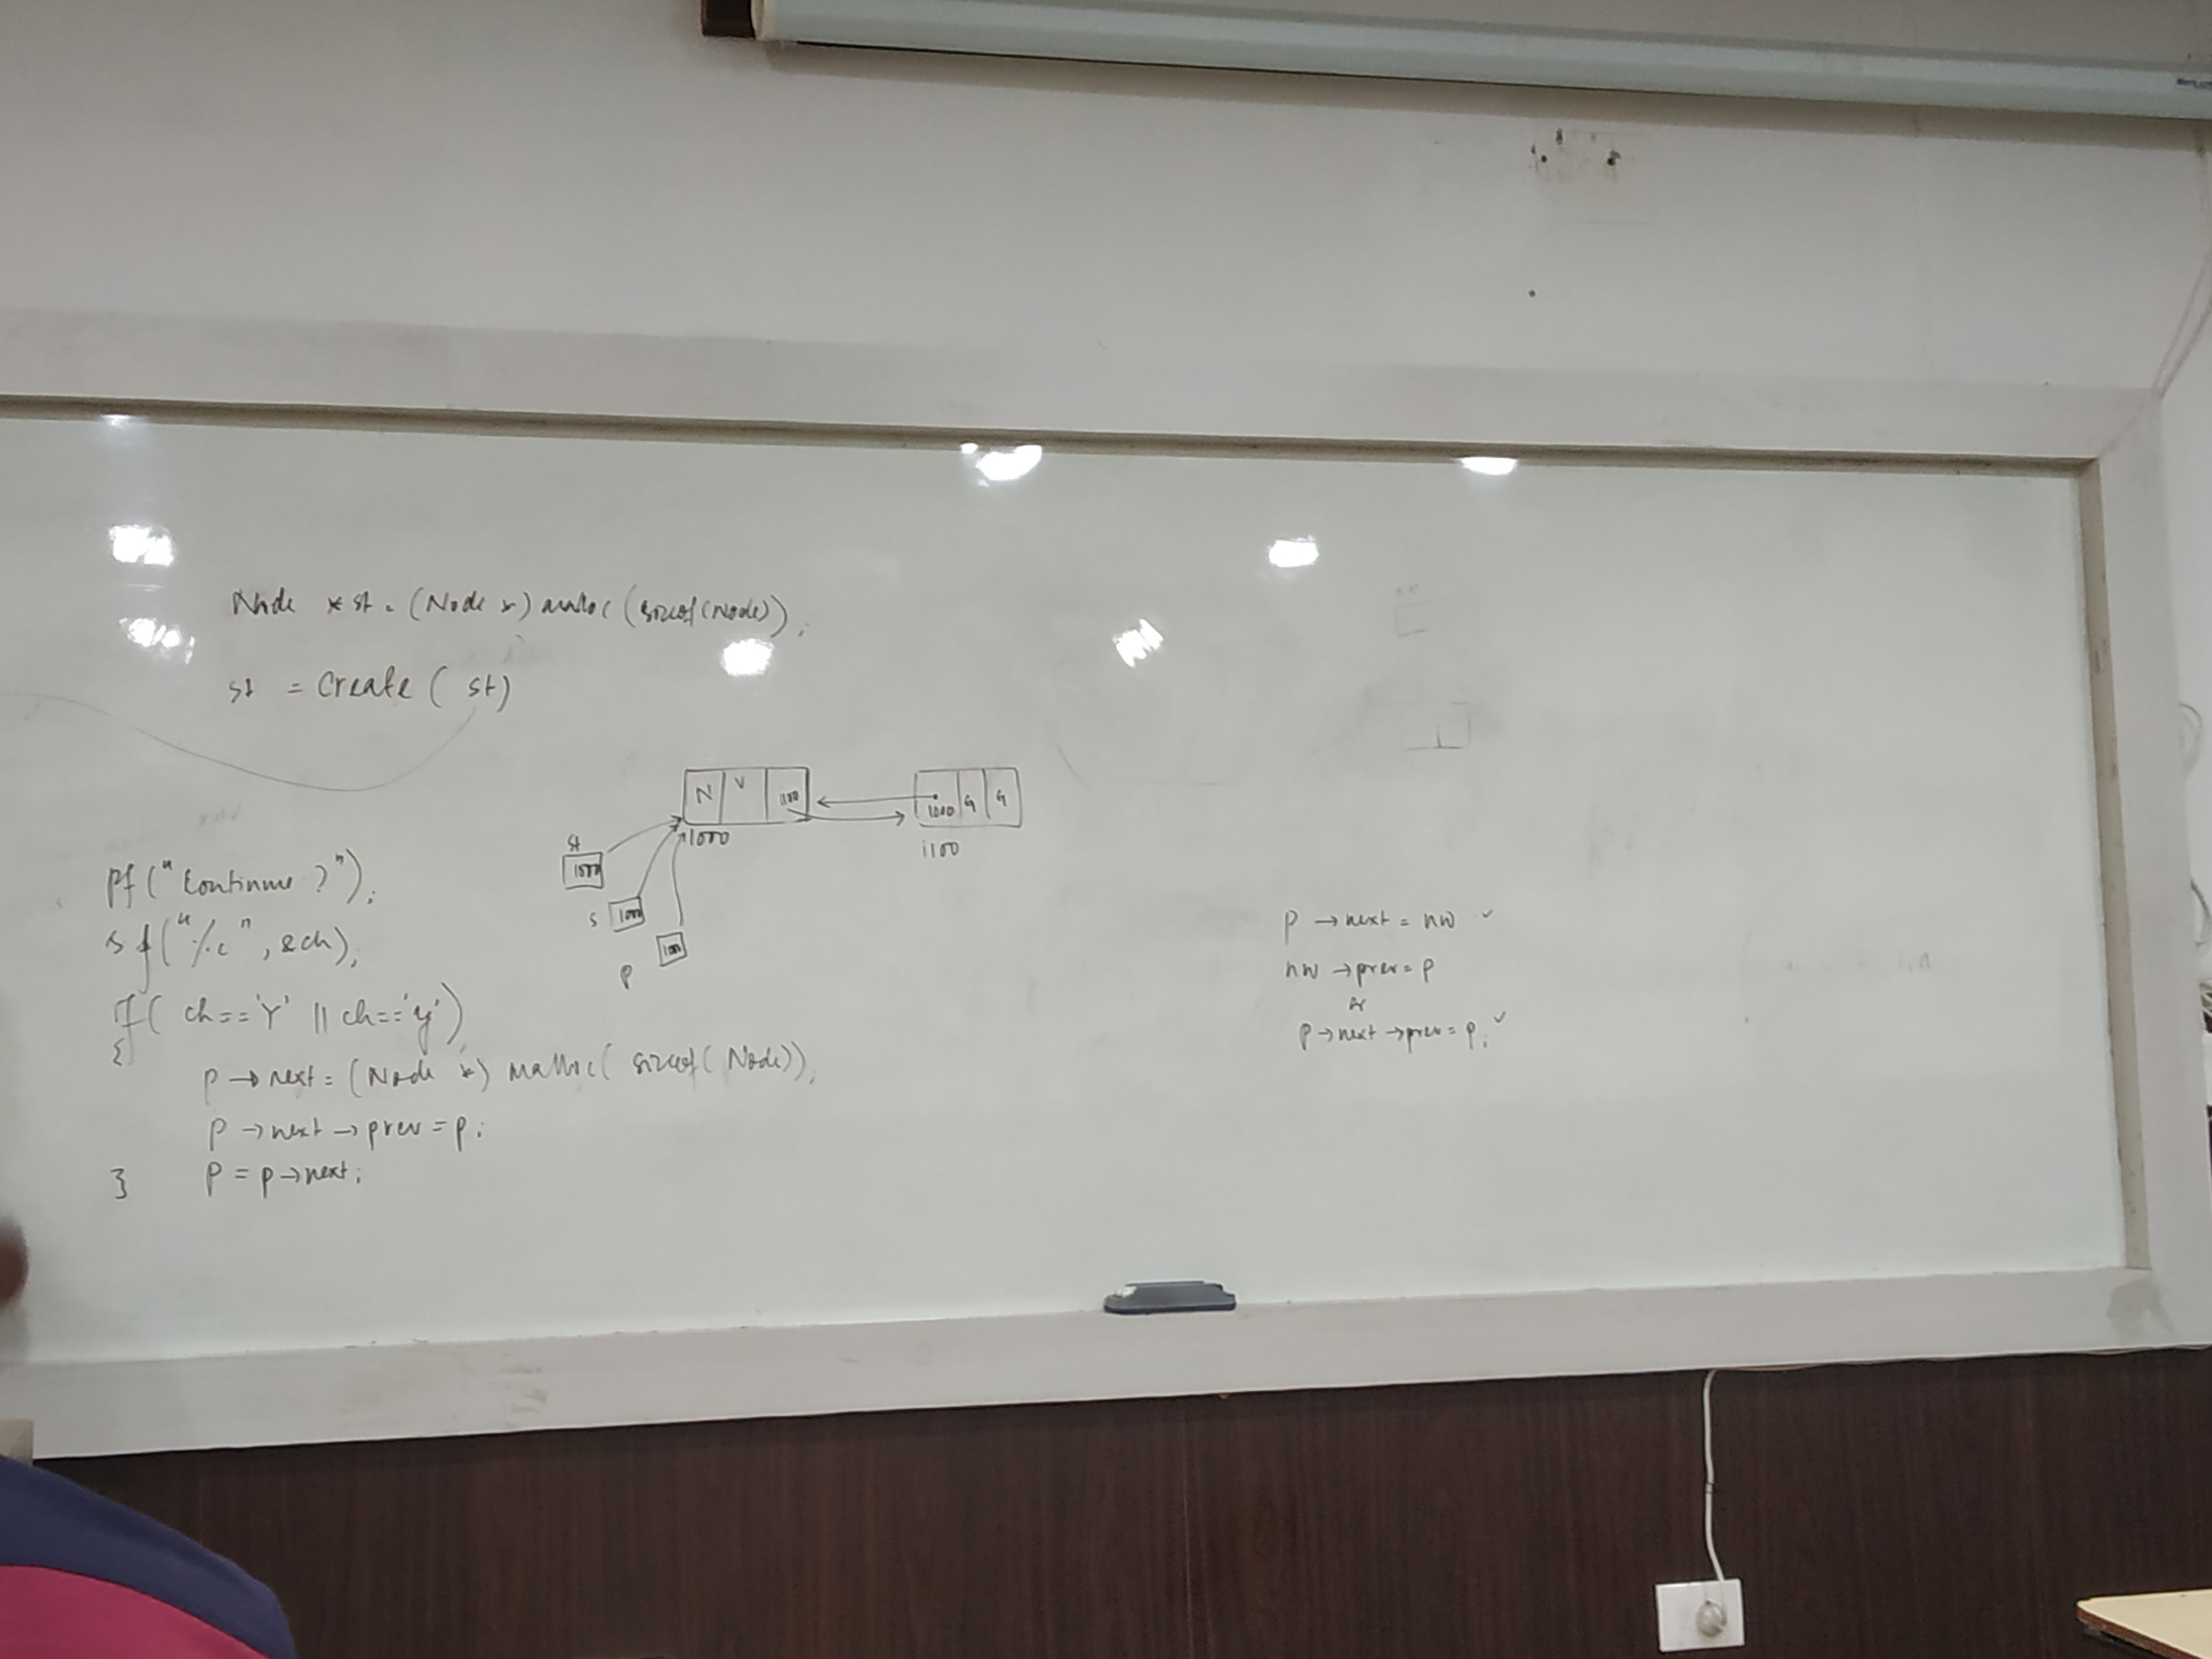 Node * st = (Node *) malloc (sizeof(Node));
st = Create ( st)
N V 1100
1000 G G
1000
1100
st
1000
s
1000
p
1000
pf ("Continue ?");
sf ("%c", &ch);
if ( ch=='Y' || ch=='y')
{
p → next = (Node *) malloc ( sizeof( Node));
p → next → prev = p;
} p = p → next;
p → next = nw ✓
nw → prev = p
or
p → next → prev = p; ✓